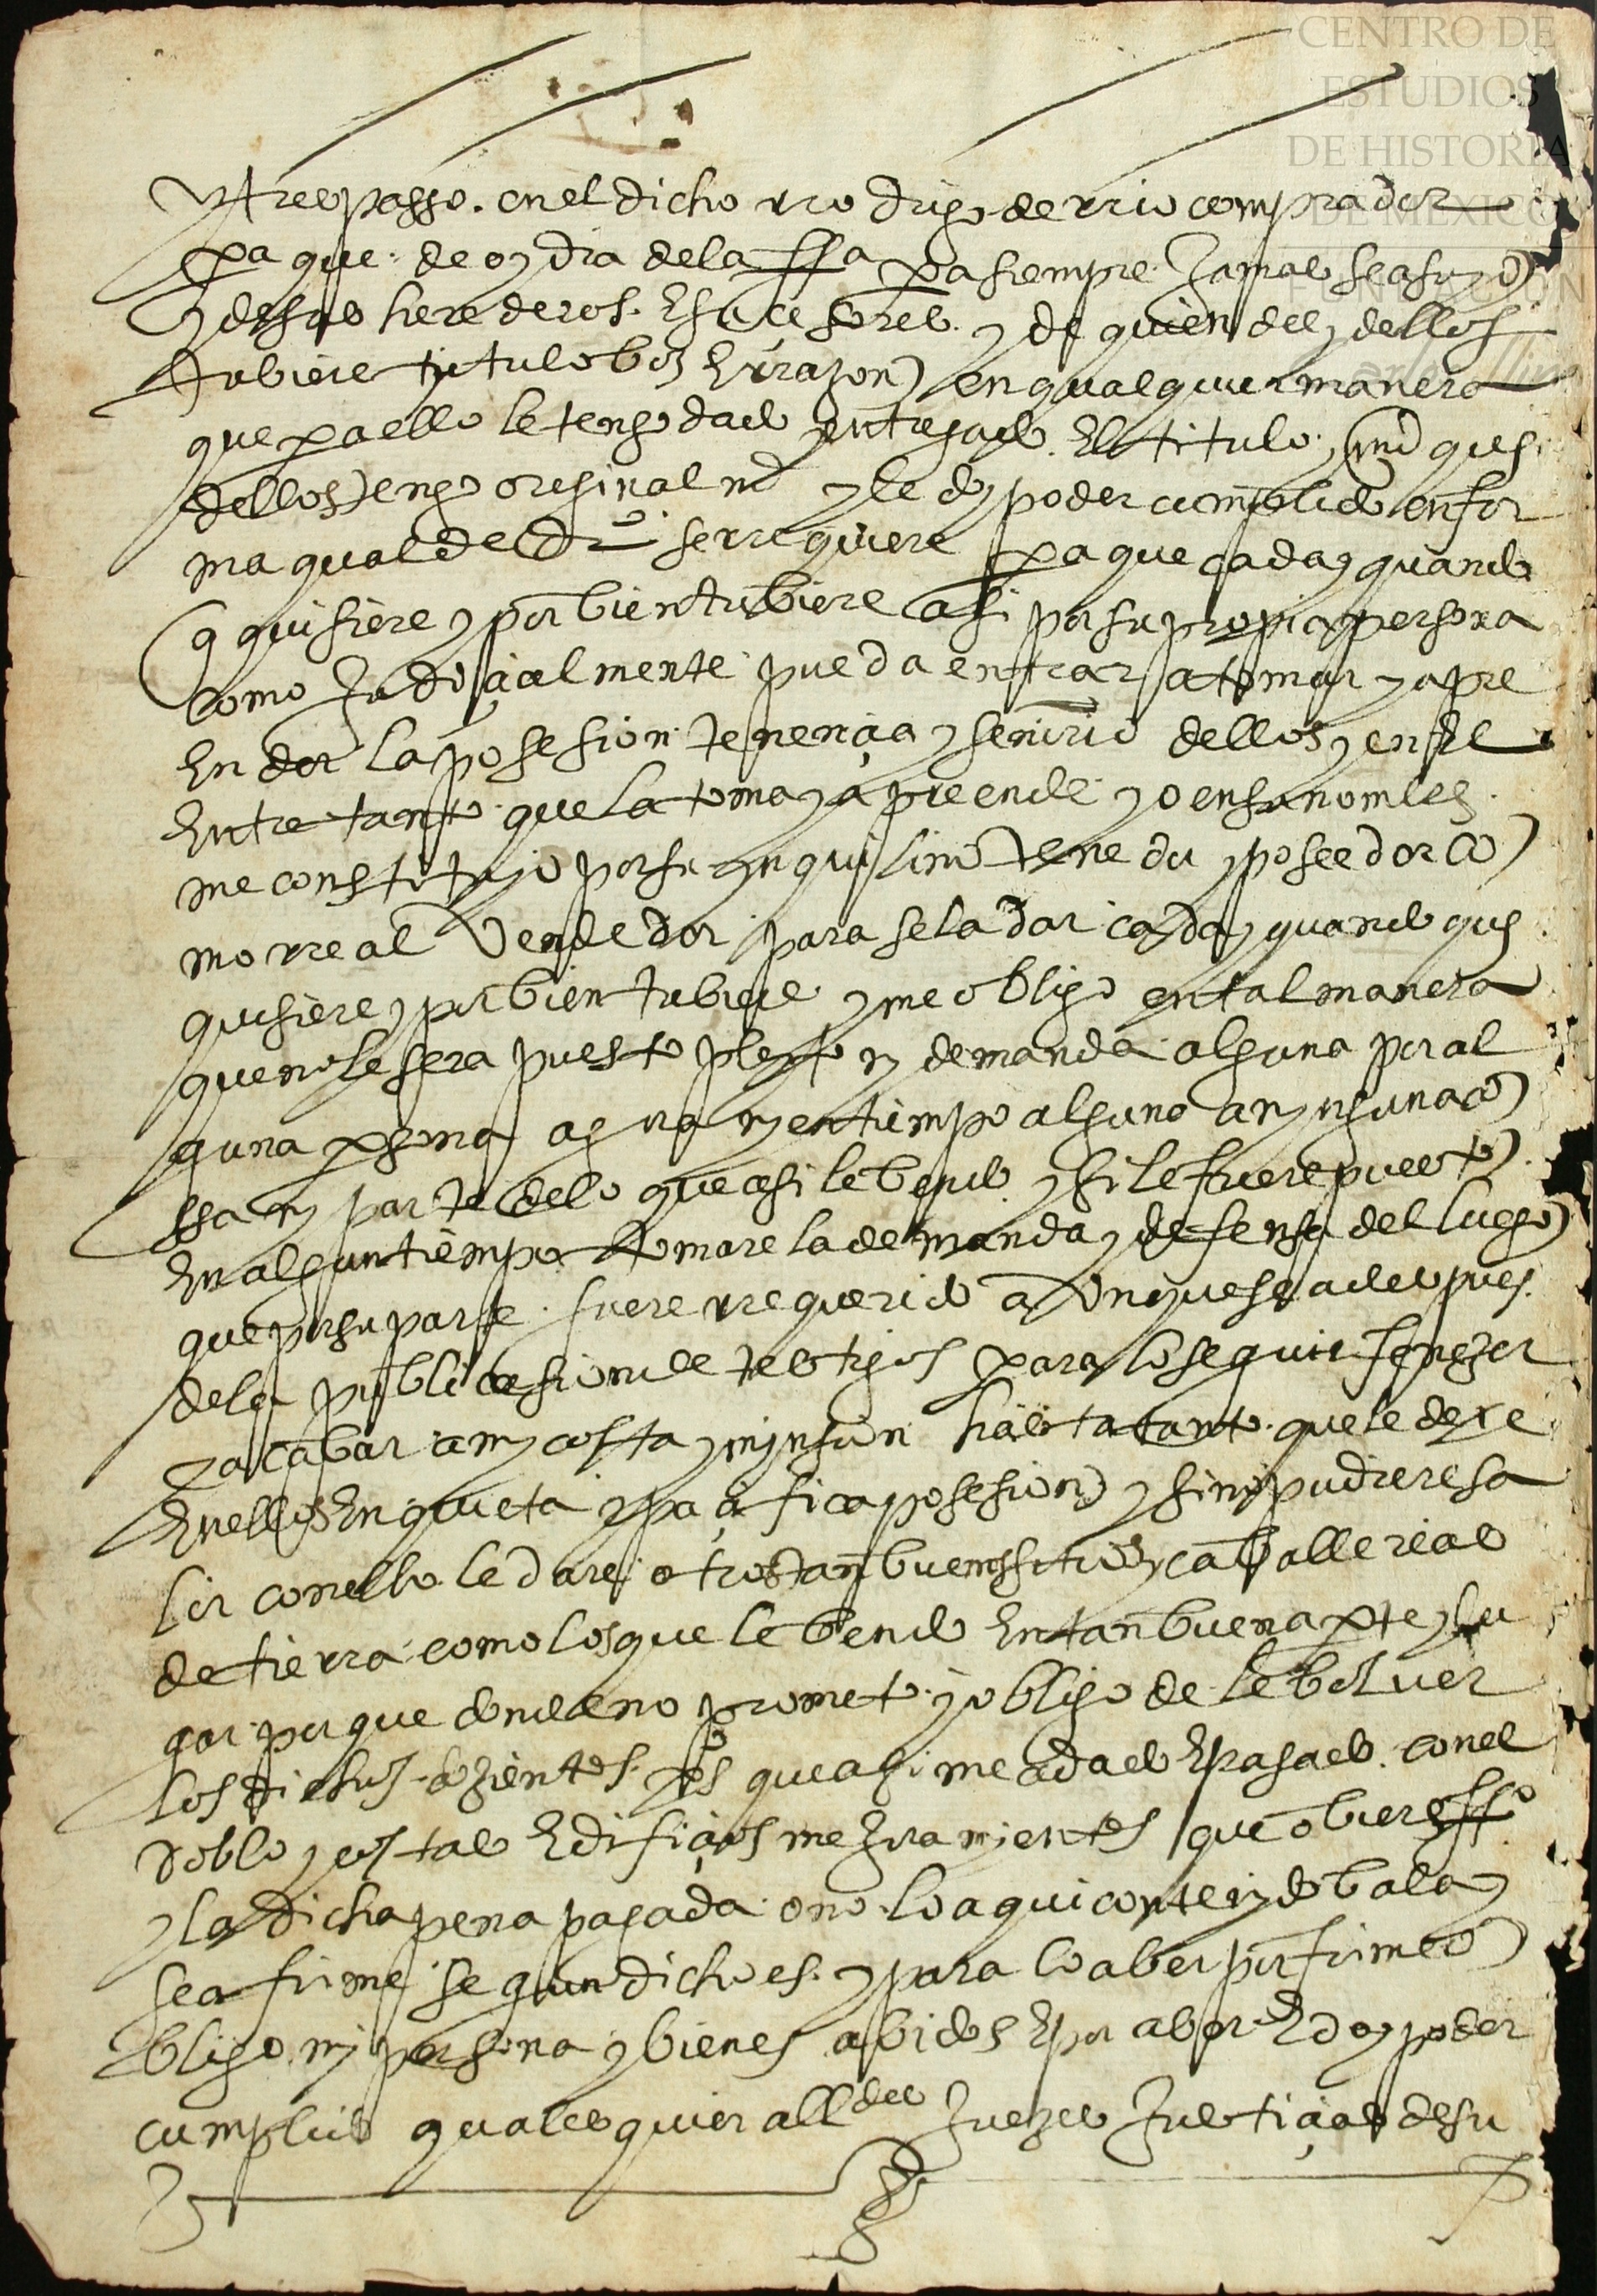 CENTRO DE
ESTUDIOS
DE HISTORIA
DE MEXICO
FUNDACION
y trespasso. en el dicho rrodrigo de rrio comprador
pa que de oy dia de la ffa pa siempre Jamas sea suyo
y de sus herederos. E sucesores. y de quien del y dellos
tubiere titulo boz E rrazon en qualquier manera
que pa ello le tengo dado y entregado. El titulo y md ques
dellos tengo original md y le doy poder cumplido en for
ma qual de dro se rrequiere pa que cada y quando
q quisiere y por bien tubiere asi por su propia persona
como Judicialmente pueda entrar a tomar y apre
Ender la posesion tenencia y señorio dellos y en el
Entre tanto que la toma y apreende yo en su nombre
me constituyo por su ynquilino tenedor y poseedor co
mo rreal Vendedor para se la dar cada y quando que
quisiere y por bien tubiere y me obligo en tal manera
que no le sera puesto pleyto ny demanda alguna por al
guna psona agora ny en tiempo alguno a nynguna co
ssa ny parte de lo que asi le bendo y si le fuere puesto
En algun tiempo tomare la demanda y defensa del luego
que por su parte fuere rrequerido aVnque sea despues
de la publicasion de testigos para lo seguir fenezer
y acabar a my costa y mynsion hasta tanto que le dexe
En ellos En quieta y pacifica posesion y si no pudiere sa
lir con ello le dare otros tan buenos sitios y caballerias
de tierra como los que le bendo En tan buena pte y lu
gar por que donde no prometo y obligo de le bolver
los dichos dozientos ps que asi me a dado E pagado con el
doblo y costas Edificios mezoramyentos que obiere ffo
y la dicha pena pagada o no lo aqui contenydo bala y
sea firme segun dicho es. y para lo aber por firme o
bligo my persona y bienes abidos E por aber E doy poder
cumplido qualesquier alldes Juezes Justicias de su